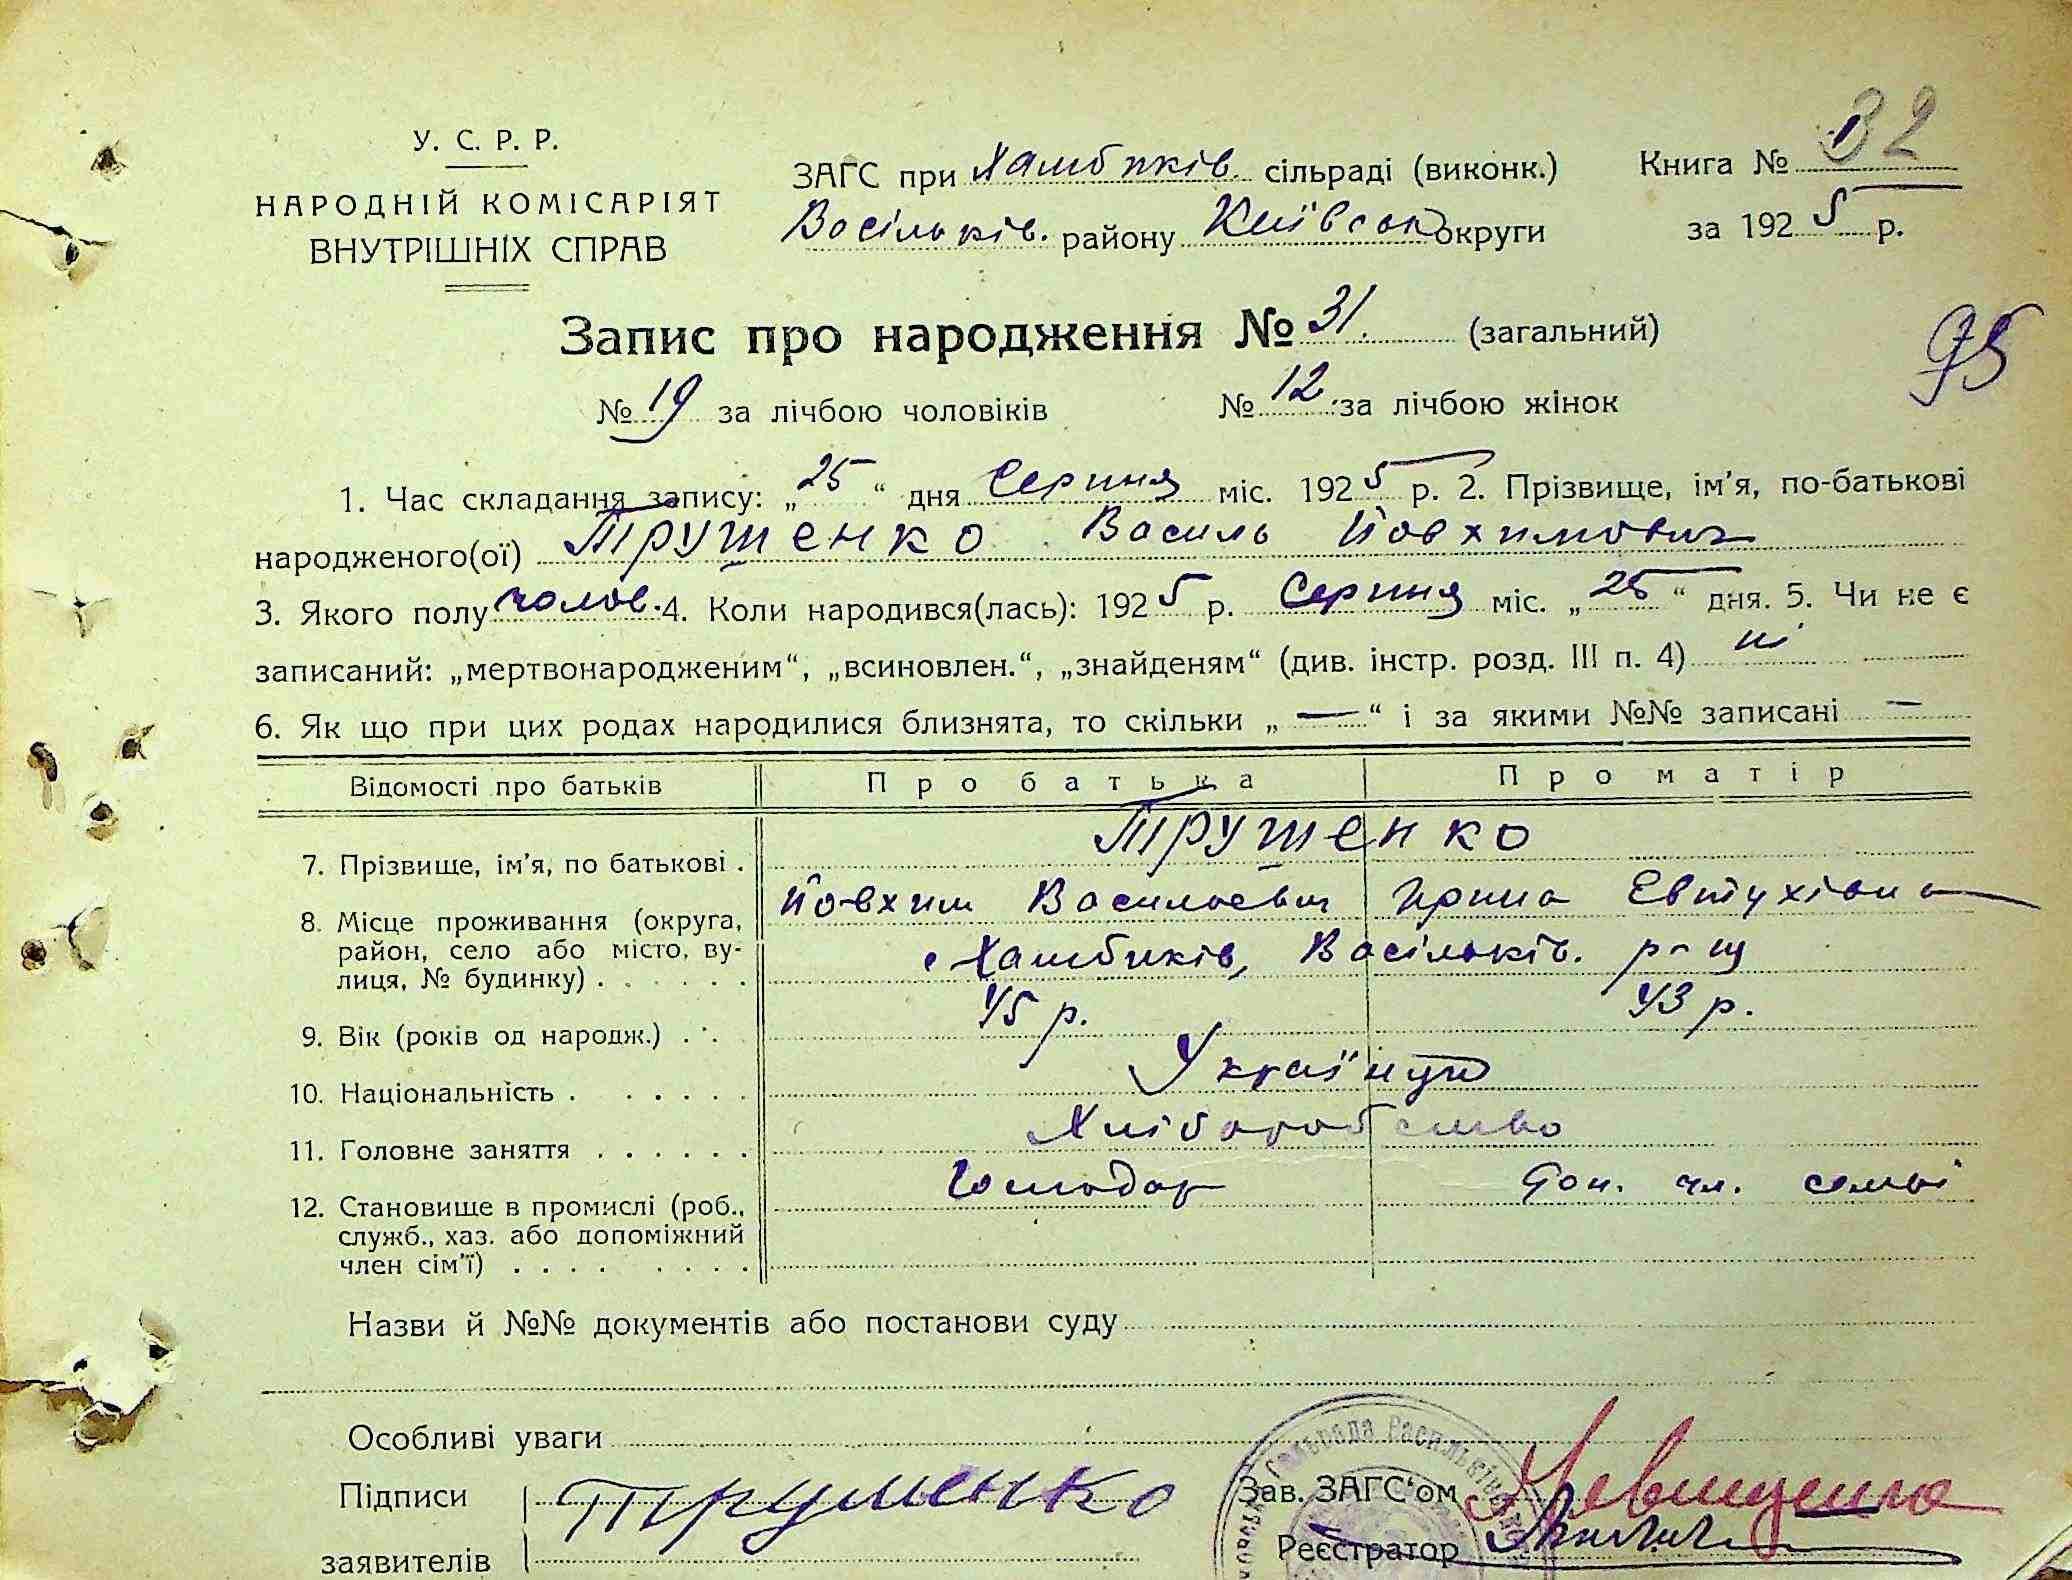 У. С. Р. Р.
НАРОДНІЙ КОМІСАРІЯТ
ВНУТРІШНІХ СПРАВ
ЗАГС при Хамбиків. сільраді (виконк.) Книга № 32
Васільків. району Київськ округи за 1925 р.
Запис про народження № 31. (загальний)
95
№ 19 за лічбою чоловіків № 12 за лічбою жінок
1. Час складання запису: „25“ дня Серпня міс. 1925 р. 2. Прізвище, ім’я, по-батькові
народженого(ої) Трушенко Василь Йовхимович
3. Якого полу чолов. 4. Коли народився(лась): 1925 р. Серпня міс. „25“ дня. 5. Чи не є
записаний: „мертвонародженим“, „всиновлен.“, „знайденям“ (див. інстр. розд. III п. 4) ні
6. Як що при цих родах народилися близнята, то скільки „ — “ і за якими №№ записані —
Відомості про батьків Про батька Про матір
7. Прізвище, ім’я, по батькові . Трушенко
Йовхим Васильевич Ирина Евтухівна
8. Місце проживання (округа,
район, село або місто, ву-
лиця, № будинку) . . . . . . с Хамбиків, Васільків. р-щ
9. Вік (років од народж.) . . 45 р. 43 р.
10. Національність . . . . . . Українці
11. Головне заняття . . . . . . Хліборобство
12. Становище в промислі (роб.,
служб., хаз. або допоміжний
член сім’ї) . . . . . . . . Господар Доп. чл. семьї
Назви й №№ документів або постанови суду
Особливі уваги
Підписи Трушенко Зав. ЗАГС‘ом
заявителів Реєстратор